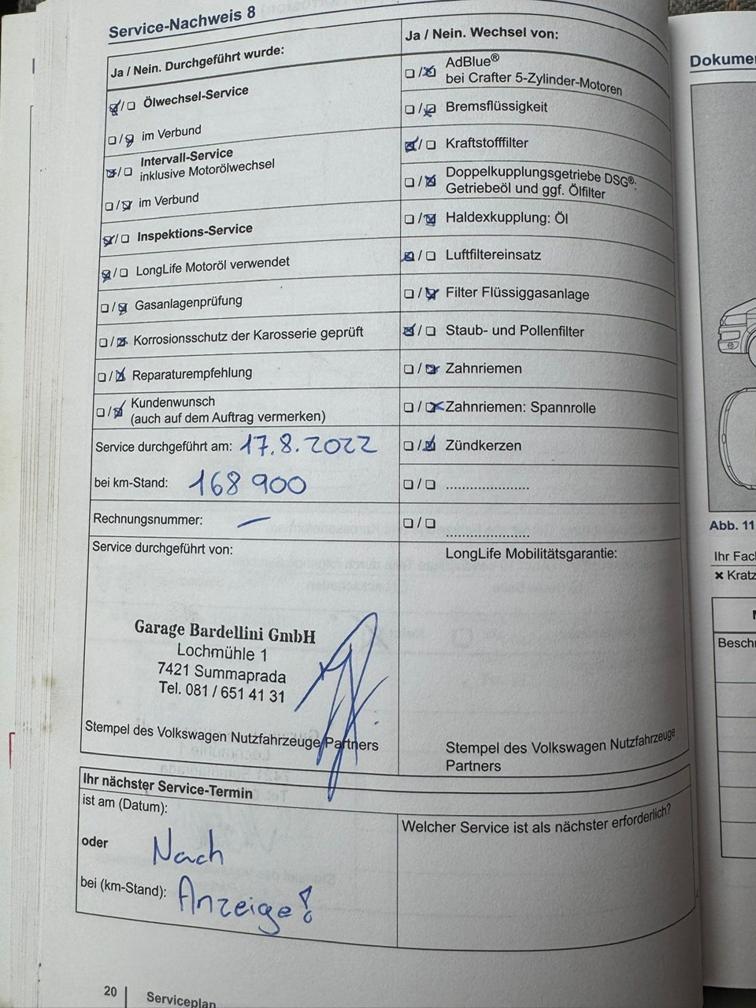 Service-Nachweis 8
Ja / Nein. Durchgeführt wurde:
Ölwechsel-Service
im Verbund
Intervall-Service
inklusive Motorölwechsel
im Verbund
Inspektions-Service
LongLife Motoröl verwendet
Gasanlagenprüfung
Korrosionsschutz der Karosserie geprüft
Reparaturempfehlung
Kundenwunsch
(auch auf dem Auftrag vermerken)
Service durchgeführt am: 17.8.2022
bei km-Stand: 168 900
Rechnungsnummer: —
Service durchgeführt von:
Garage Bardellini GmbH
Lochmühle 1
7421 Summaprada
Tel. 081 / 651 41 31
Stempel des Volkswagen Nutzfahrzeuge Partners
Ja / Nein. Wechsel von:
AdBlue®
bei Crafter 5-Zylinder-Motoren
Bremsflüssigkeit
Kraftstofffilter
Doppelkupplungsgetriebe DSG®:
Getriebeöl und ggf. Ölfilter
Haldexkupplung: Öl
Luftfiltereinsatz
Filter Flüssiggasanlage
Staub- und Pollenfilter
Zahnriemen
Zahnriemen: Spannrolle
Zündkerzen
LongLife Mobilitätsgarantie:
Stempel des Volkswagen Nutzfahrzeuge
Partners
Ihr nächster Service-Termin
ist am (Datum):
oder
Nach
bei (km-Stand): Anzeige!
Welcher Service ist als nächster erforderlich?
20 | Serviceplan
Dokume
Abb. 11
Ihr Fac
× Kratz
Besch